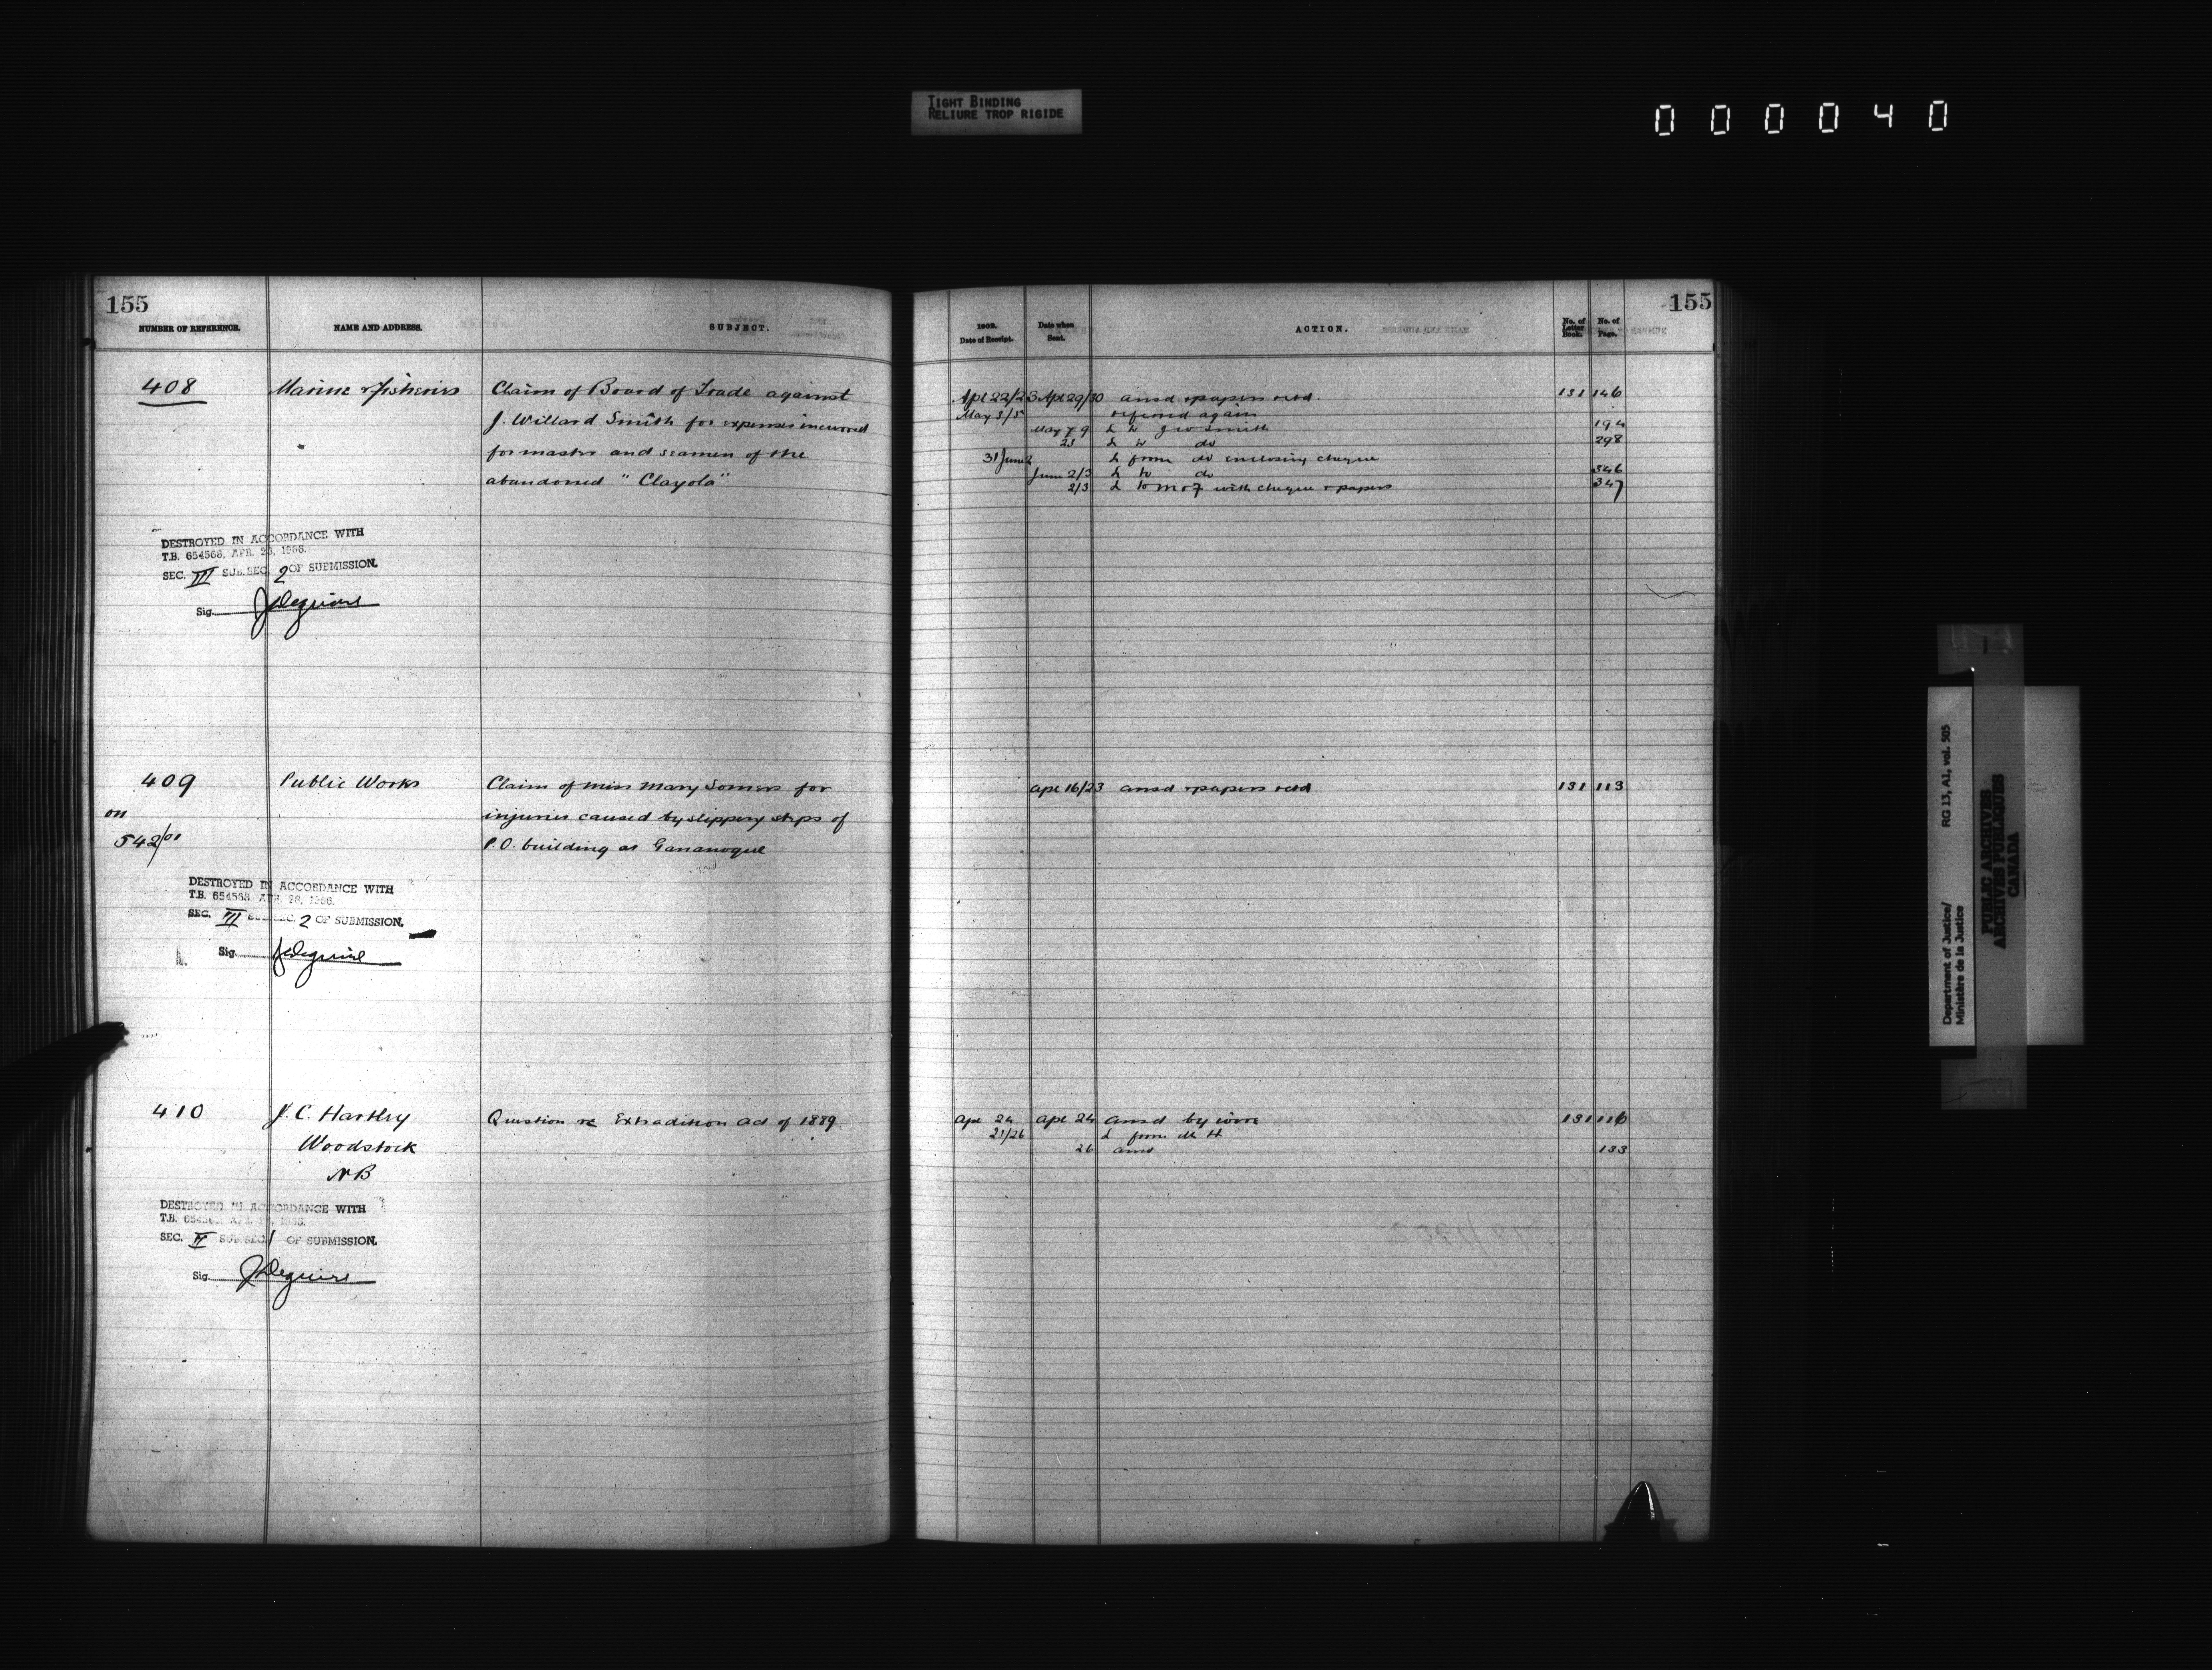 TIGHT BINDING
RELIURE TROP RIGIDE
000040
155
NUMBER OF REFERENCE.
NAME AND ADDRESS.
SUBJECT.
408
Marine & Fisheries
Claim of Board of Trade against
J. Willard Smith for expenses incurred
for master and seamen of the
abandoned "Clayola"
DESTROYED IN ACCORDANCE WITH
T.B. 654568, APR. 28, 1966.
SEC. III SUB.SEC. 2 OF SUBMISSION.
Sig. JDeguire
409
on
542/01
Public Works
Claim of Miss Mary Somers for
injuries caused by slippery steps of
P.O. building at Gananoque
DESTROYED IN ACCORDANCE WITH
T.B. 654568, APR. 28, 1966.
SEC. III SUB.SEC. 2 OF SUBMISSION.
Sig. JDeguire
410
J. C. Hartley
Woodstock
NB
Question re Extradition Act of 1889
DESTROYED IN ACCORDANCE WITH
T.B. 654568, APR. 28, 1966.
SEC. II SUB.SEC. 1 OF SUBMISSION.
Sig. JDeguire
155
1902.
Date of Receipt.
Date when
Sent.
ACTION.
No. of
Letter
Book.
No. of
Page.
Apl 22/23 Apl 29/30 ansd & papers retd. 131 146
May 3/5 referred again
May 7 9 L to J W Smith 194
23 L to do 298
31 June 2 L from do enclosing cheque
June 2/3 L to do 346
2/3 L to M of F with cheque & papers 347
Apl 16/23 ansd & papers retd 131 113
Apl 24 Apl 24 Ansd by wire 131 116
21/26 L from Mr H
26 ansd 133
RG 13, A1, vol. 505
Department of Justice/
Ministère de la Justice
PUBLIC ARCHIVES
ARCHIVES PUBLIQUES
CANADA